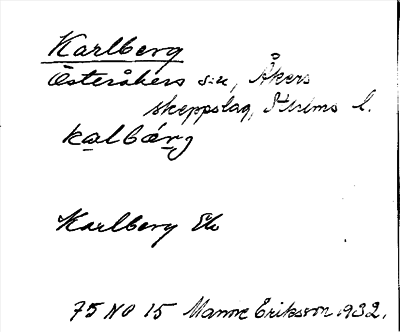 Karlberg
Österåkers sn, Åkers
skeppslag, Sthlms l.
kalbárj
Karlberg Ek
75 NO 15 Manne Eriksson 1932.